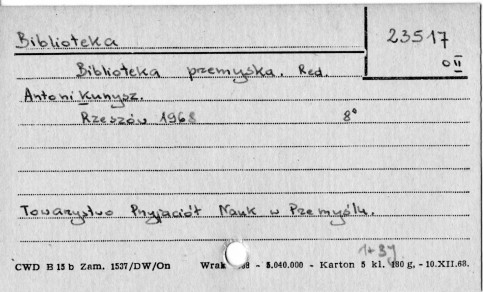 Biblioteka
23517
OII
Biblioteka przemyska. Red.
Antoni Kunysz.
Rzeszów 1968 8°
Towarzystwo Przyjaciół Nauk w Przemyślu.
1+39
CWD B 15 b Zam. 1537/DW/On Wrak 68 - 5.040.000 - Karton 5 kl. 180 g. - 10.XII.68.